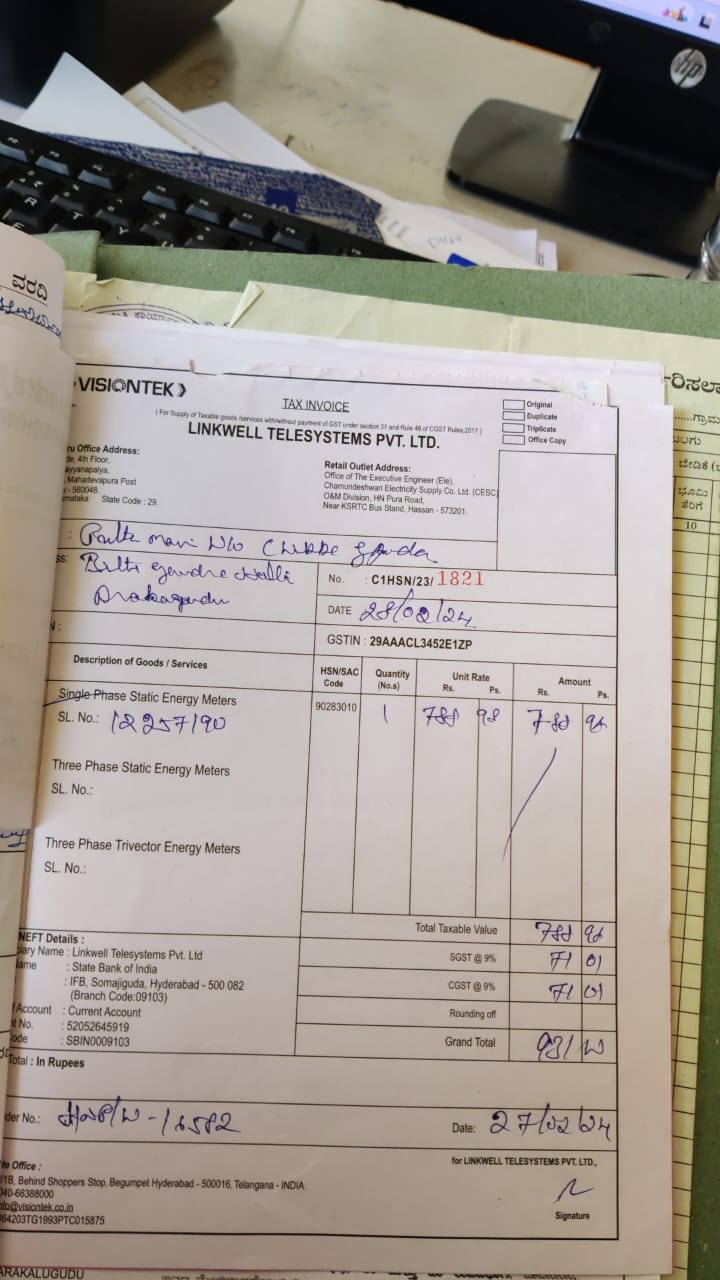 hp
ವರದಿ
VISIONTEK
TAX INVOICE
( For Supply of Taxable goods /services with/without payment of GST under section 31 and Rule 46 of CGST Rules,2017 )
LINKWELL TELESYSTEMS PVT. LTD.
Original
Duplicate
Triplicate
Office Copy
ru Office Address:
de, 4th Floor,
ayyanapalya,
, Mahadevapura Post
- 560048.
State Code : 29.
Retail Outlet Address:
Office of The Executive Engineer (Ele),
Chamundeshwari Electricity Supply Co. Ltd. (CESC)
O&M Division, HN Pura Road,
Near KSRTC Bus Stand, Hassan - 573201.
ss:
No. : C1HSN/23/ 1821
DATE 28/02/24
N :
GSTIN : 29AAACL3452E1ZP
Description of Goods / Services
HSN/SAC Code
Quantity (No.s)
Unit Rate
Rs. Ps.
Amount
Rs. Ps.
Single Phase Static Energy Meters
90283010 1 788 98 788 98
SL. No.: 12257190
Three Phase Static Energy Meters
SL. No.:
Three Phase Trivector Energy Meters
SL. No.:
Total Taxable Value 788 98
SGST @ 9% 71 01
CGST @ 9% 71 01
Rounding off
Grand Total 931
NEFT Details :
ciary Name : Linkwell Telesystems Pvt. Ltd
Name : State Bank of India
: IFB, Somajiguda, Hyderabad - 500 082
(Branch Code:09103)
f Account : Current Account
t No. : 52052645919
ode : SBIN0009103
Total : In Rupees
der No.:
Date: 27/02/24
te Office :
1B, Behind Shoppers Stop, Begumpet Hyderabad - 500016, Telangana - INDIA.
040-66388000
nfo@visiontek.co.in
64203TG1993PTC015875
for LINKWELL TELESYSTEMS PVT. LTD.,
Signature
ರಿಸಲಾ
ಗ್ರಾಮ
ಬೇಡಿಕೆ
ಭೂಮಿ
ತೆರಿಗೆ
10
ARAKALUGUDU